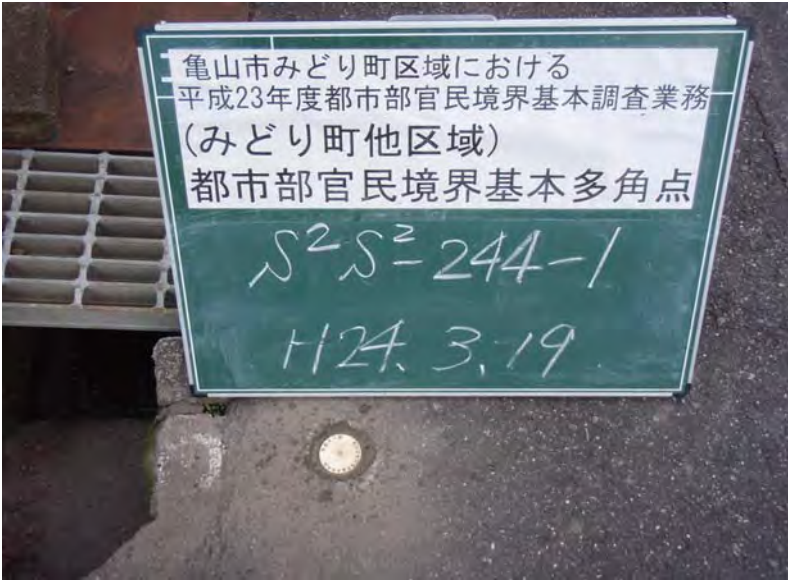 亀山市みどり町区域における
平成23年度都市部官民境界基本調査業務
(みどり町他区域)
都市部官民境界基本多角点
S²S²-244-1
H24.3.19